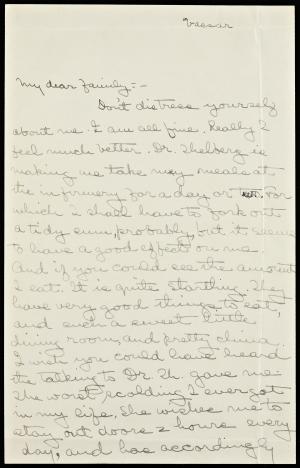 Vassar
My dear Family:-
Don't distress yourself
about me. I am all fine. Really I
feel much better. Dr. Thelberg is
making me take my meals at
the infirmery for a day or two. For
which I shall have to fork out
a tidy sum, probably, but it seems
to have a good effect on me.
And if you could see the amount
I eat. It is quite startling. They
have very good things to eat,
and such a sweet little
dining room, and pretty china.
I wish you could have heard
the talking to Dr. Th. gave me.
The worst scolding I ever got
in my life. She wishes me to
stay out doors 2 hours every
day, and has accordingly